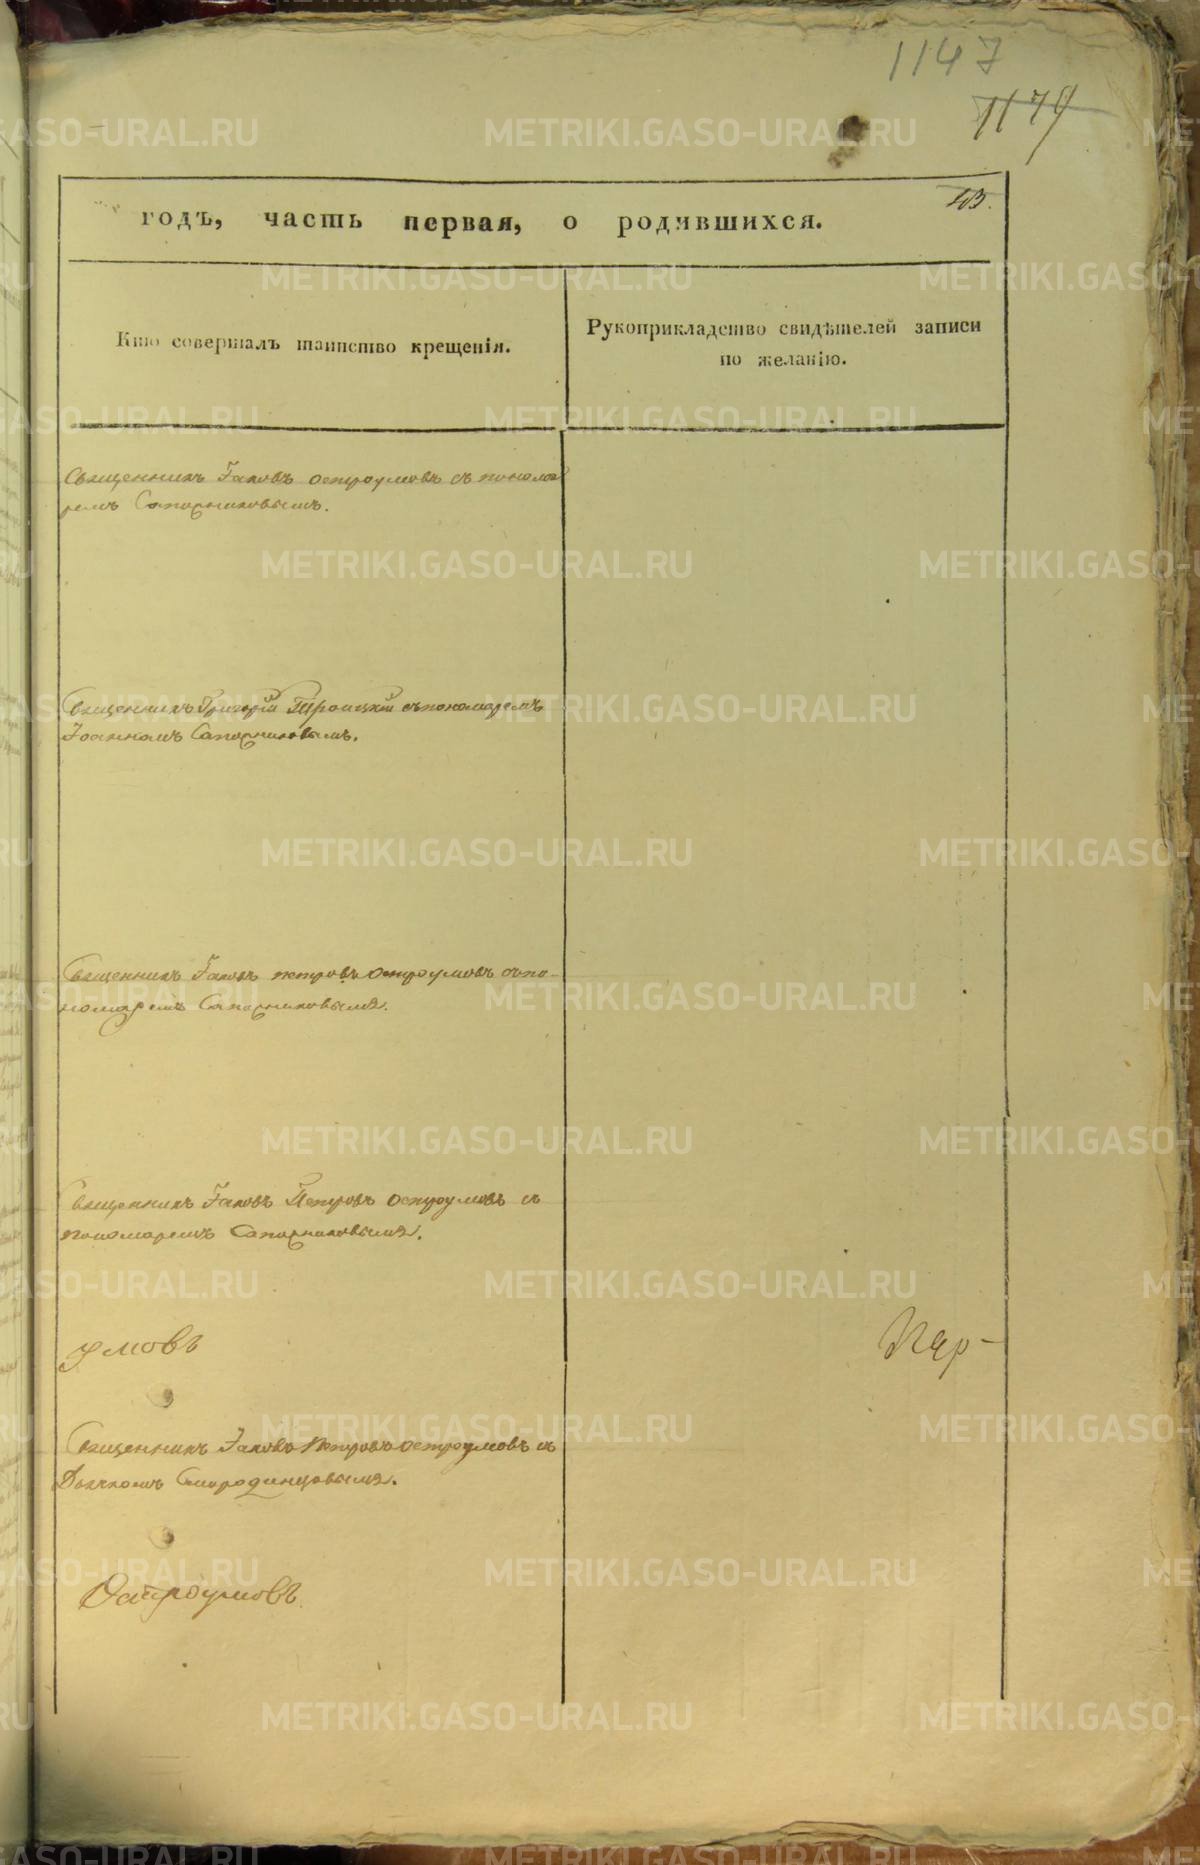 1147
1179
43.
годъ, часть первая, о родившихся.
Кто совершалъ таинство крещенія.
Рукоприкладство свидѣтелей записи
по желанію.
Священникъ Іаковъ Остроумовъ съ понома
ремъ Сапожниковымъ.
Священникъ Григорій Троицкій съ пономаремъ
Іоанномъ Сапожниковымъ.
Священникъ Іаковъ Петровъ Остроумовъ съ по-
номаремъ Сапожниковымъ.
Священникъ Іаковъ Петровъ Остроумовъ съ
пономаремъ Сапожниковымъ.
умовъ
Пер-
Священникъ Іаковъ Петровъ Остроумовъ съ
Дьячкомъ Смородинцовымъ.
Остроумовъ.
METRIKI.GASO-URAL.RU